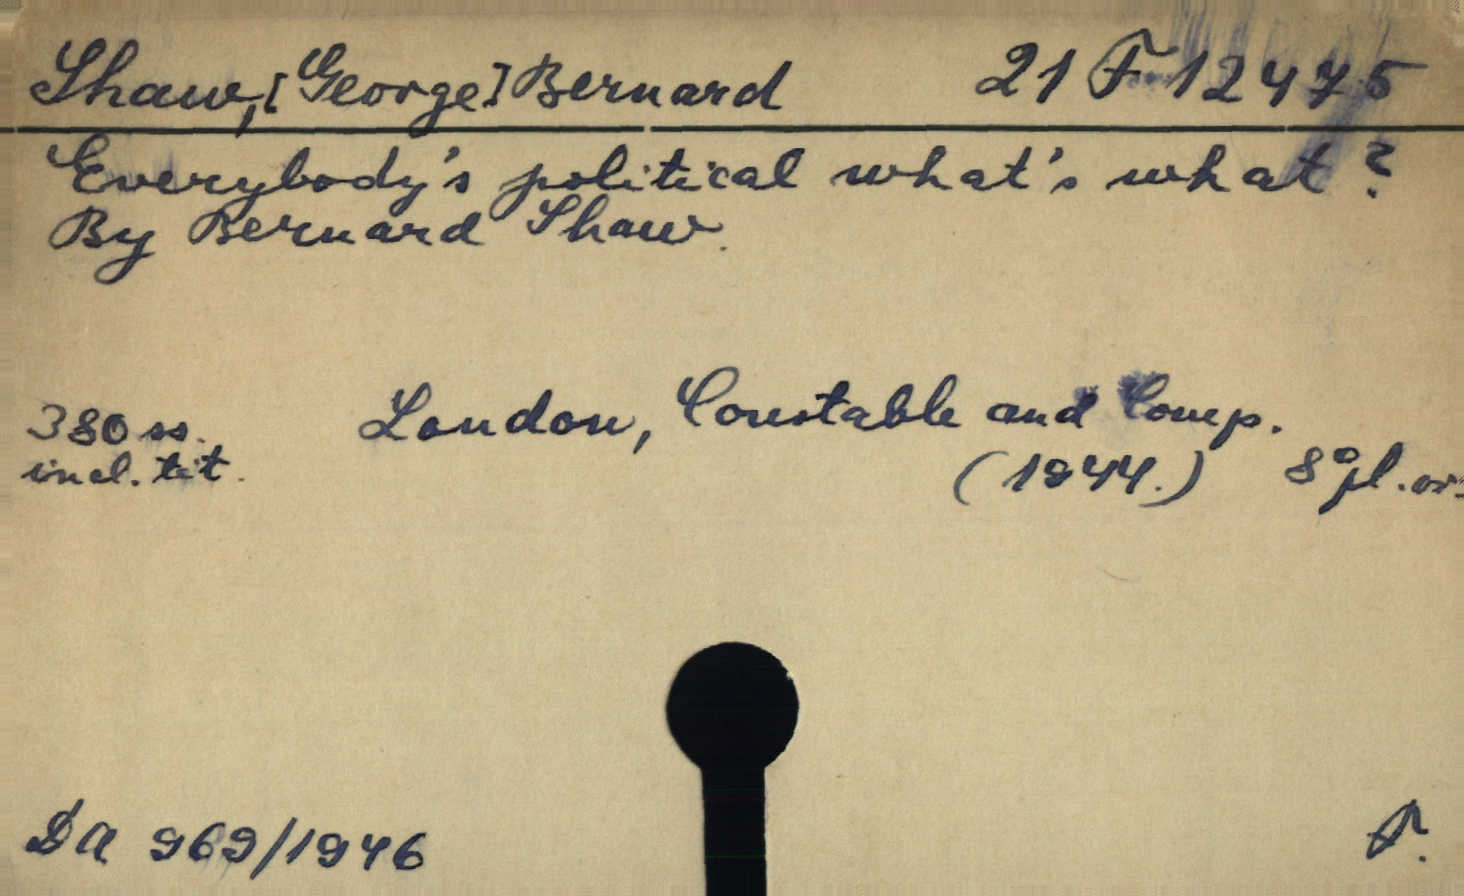 Shaw, [George] Bernard 21 F 12475
Everybody's political what's what?
By Bernard Shaw.
380 ss. London, Constable and Comp.
incl. tit. (1944.) 8° pl. or:
Da 969/1946